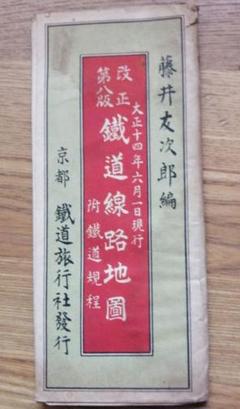 藤井友次郎編
大正十四年六月一日現行
改正
第八版
鐵道線路地圖
附鐵道規程
京都 鐵道旅行社發行